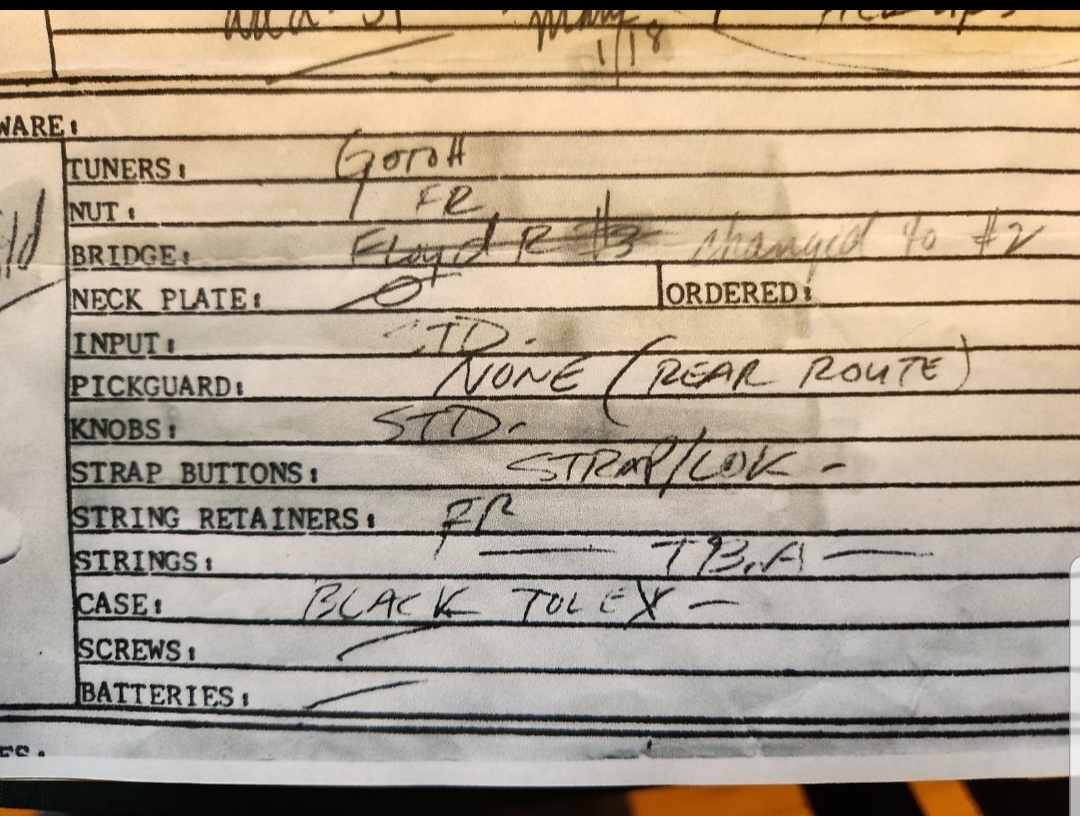 1/18
WARE:
TUNERS: GOTOH
NUT: FR
BRIDGE: Floyd R #3 changed to #2
NECK PLATE: ORDERED:
INPUT: STD.
PICKGUARD: NONE (REAR ROUTE)
KNOBS: STD.
STRAP BUTTONS: STRAP/LOK -
STRING RETAINERS: FR
STRINGS: — T.B.A —
CASE: BLACK TOLEX —
SCREWS:
BATTERIES: